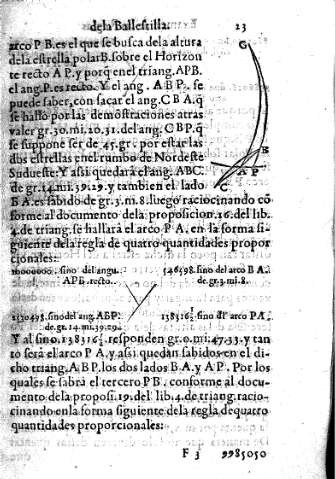 dela Ballestilla. 23
arco P B. es el que se busca de la altura
dela estrella polar B. sobre el Horizon
te recto A P. y porq̃ en el triang. APB.
el ang. P. es recto. Y el ang. A B P. se
puede saber, con sacar el ang. C B A. q̃
se hallo por las demostraciones atras
valer gr. 30. mi. 20. 31. del ang. C B P. q̃
se suppone ser de 45. gr. por estar las
dos estrellas en el rumbo de Nordeste
Sudueste: Y assi quedará el ang. ABC.
de gr. 14. mi. 39. 29. y tambien el lado
B A. es sabido de gr. 3. m. 8. luego raciocinando cõ
forme al documento dela proposicion. 16. del lib.
4. de triang. se hallará el arco P A. en la forma si-
guiente dela regla de quatro quantidades propor
cionales:
10000000. sino del angu. 546598. sino del arco B A.
APB. recto. de gr. 3. mi. 8.
2530493. sino del ang. ABP: 138316 1/2. sino dl' arco PA.
de gr. 14. mi. 39. 29.
Y al sino. 138316 1/2. responden gr. 0. mi: 47. 33. y tan
to será el arco P A. y assi quedan sabidos en el di-
cho triang. A BP. los dos lados B A. y A P. Por los
quales se sabrá el tercero P B. conforme al docu-
mento dela proposi. 19. del lib. 4. de triang. racio-
cinando en la forma siguiente dela regla de quatro
quantidades proporcionales:
F 3 9985050
G
B
A P
C